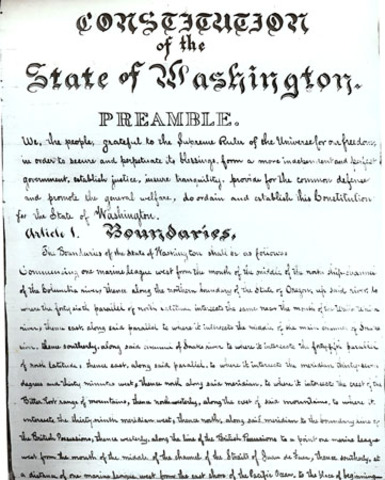 CONSTITUTION
of the
State of Washington.
PREAMBLE.
We, the people, grateful to the Supreme Ruler of the Universe for our freedom,
in order to secure and perpetuate its blessings, form a more independent and perfect
government, establish justice, insure tranquility, provide for the common defense
and promote the general welfare, do ordain and establish this Constitution
for the State of Washington.
Article 1. Boundaries.
The Boundaries of the State of Washington shall be as follows:
Commencing one marine league west from the mouth of the middle of the north ship channel
of the Columbia river, thence along the northern boundary of the State of Oregon, up said river to
where the forty sixth parallel of north latitude intersects the same near the mouth of the Walla Walla
river, thence east along said parallel to where it intersects the middle of the main channel of Snake
river, thence southerly, along said channel of Snake river to where it intersects the parallel
of north latitude, thence, east, along said parallel, to where it intersects the meridian thirty seven
degrees and thirty minutes west, thence north along said meridian, to where it intersects the crest of the
Bitter Root range of mountains, thence northwesterly, along the crest of said mountains, to where it
intersects the thirty ninth meridian west, thence north, along said meridian to the boundary line of
the British Possessions, thence westerly, along the line of the British Possessions to a point one marine league
west from the mouth of the middle of the channel of the Straits of Juan de Fuca, thence southerly, at
a distance of one marine league west from the east shore of the Pacific Ocean, to the place of beginning